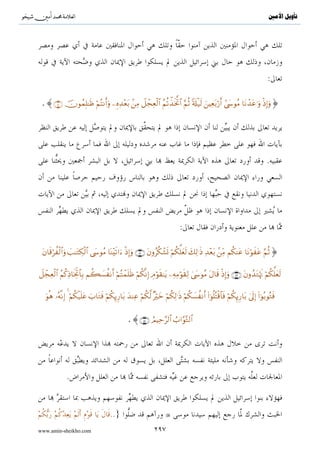 تأويل الأمين
العلامة محمد أمين شيخو
تلك هي أحوال المؤمنين الذين آمنوا حقّاً وتلك هي أحوال المنافقين عامة في أي عصر ومصر
وزمان، وذلك هو حال بني إسرائيل الذين لم يسلكوا طريق الإيمان الذي وضَّحته الآية في قوله
تعالى:
﴿ وَإِذْ وَٰعَدْنَا مُوسَىٰٓ أَرْبَعِينَ لَيْلَةً ثُمَّ ٱتَّخَذْتُمُ ٱلْعِجْلَ مِنۢ بَعْدِهِۦ وَأَنتُمْ ظَٰلِمُونَ ﴾ .
يريد تعالى بذلك أن يبيِّن لنا أن الإنسان إذا هو لم يتحقَّق بالإيمان ولم يتوصَّل إليه عن طريق النظر
بآيات الله فهو على خطر عظيم فإذا ما غاب عنه مرشده ودليله إلى الله فما أسرع ما ينقلب على
عقبيه. وقد أورد تعالى هذه الآية الكريمة يعظ بها بني إسرائيل، لا بل البشر أجمعين ويحثُّنا على
السعي وراء الإيمان الصحيح، أورد تعالى ذلك وهو بالناس رؤوف رحيم حرصاً علينا من أن
تستهوي الدنيا ونقع في حبِّها إذا نحن لم نسلك طريق الإيمان ونهتدي إليه، ثم بيَّن تعالى من الآيات
ما يُشير إلى مداواة الإنسان إذا هو ظلَّ مريض النفس ولم يسلك طريق الإيمان الذي يطهِّر النفس
ممَّا بها من علل معنوية وأدران فقال تعالى:
﴿ ثُمَّ عَفَوْنَا عَنكُم مِّنۢ بَعْدِ ذَٰلِكَ لَعَلَّكُمْ تَشْكُرُونَ وَإِذْ ءَاتَيْنَا مُوسَى ٱلْكِتَٰبَ وَٱلْفُرْقَانَ
لَعَلَّكُمْ تَهْتَدُونَ وَإِذْ قَالَ مُوسَىٰ لِقَوْمِهِۦ يَٰقَوْمِ إِنَّكُمْ ظَلَمْتُمْ أَنفُسَكُم بِٱتِّخَاذِكُمُ ٱلْعِجْلَ
فَتُوبُوٓاْ إِلَىٰ بَارِئِكُمْ فَٱقْتُلُوٓاْ أَنفُسَكُمْ ذَٰلِكُمْ خَيْرٌ لَّكُمْ عِندَ بَارِئِكُمْ فَتَابَ عَلَيْكُمْ ۚ إِنَّهُۥ هُوَ
ٱلتَّوَّابُ ٱلرَّحِيمُ ﴾ .
وأنت ترى من خلال هذه الآيات الكريمة أن الله تعالى من رحمته بهذا الإنسان لا يدعُه مريض
النفس ولا يتركه وشأنه مليئة نفسه بشتَّى العلل، بل يسوق له من الشدائد ويضيِّق له أنواعاً من
المعالجات لعلَّه يتوب إلى بارئه ويرجع عن غيِّه فتشفى نفسه ممَّا بها من العلل والأمراض.
فهؤلاء بنوا إسرائيل الذين لم يسلكوا طريق الإيمان الذي يطهِّر نفوسهم ويذهب بما استقرَّ بها من
الخبث والشرك لمَّا رجع إليهم سيدنا موسى ورآهم قد ضلُّوا {..قَالَ يَٰقَوْمِ أَلَمْ يَعِدْكُمْ رَبُّكُمْ
www.amin-sheikho.com
٢٩٧